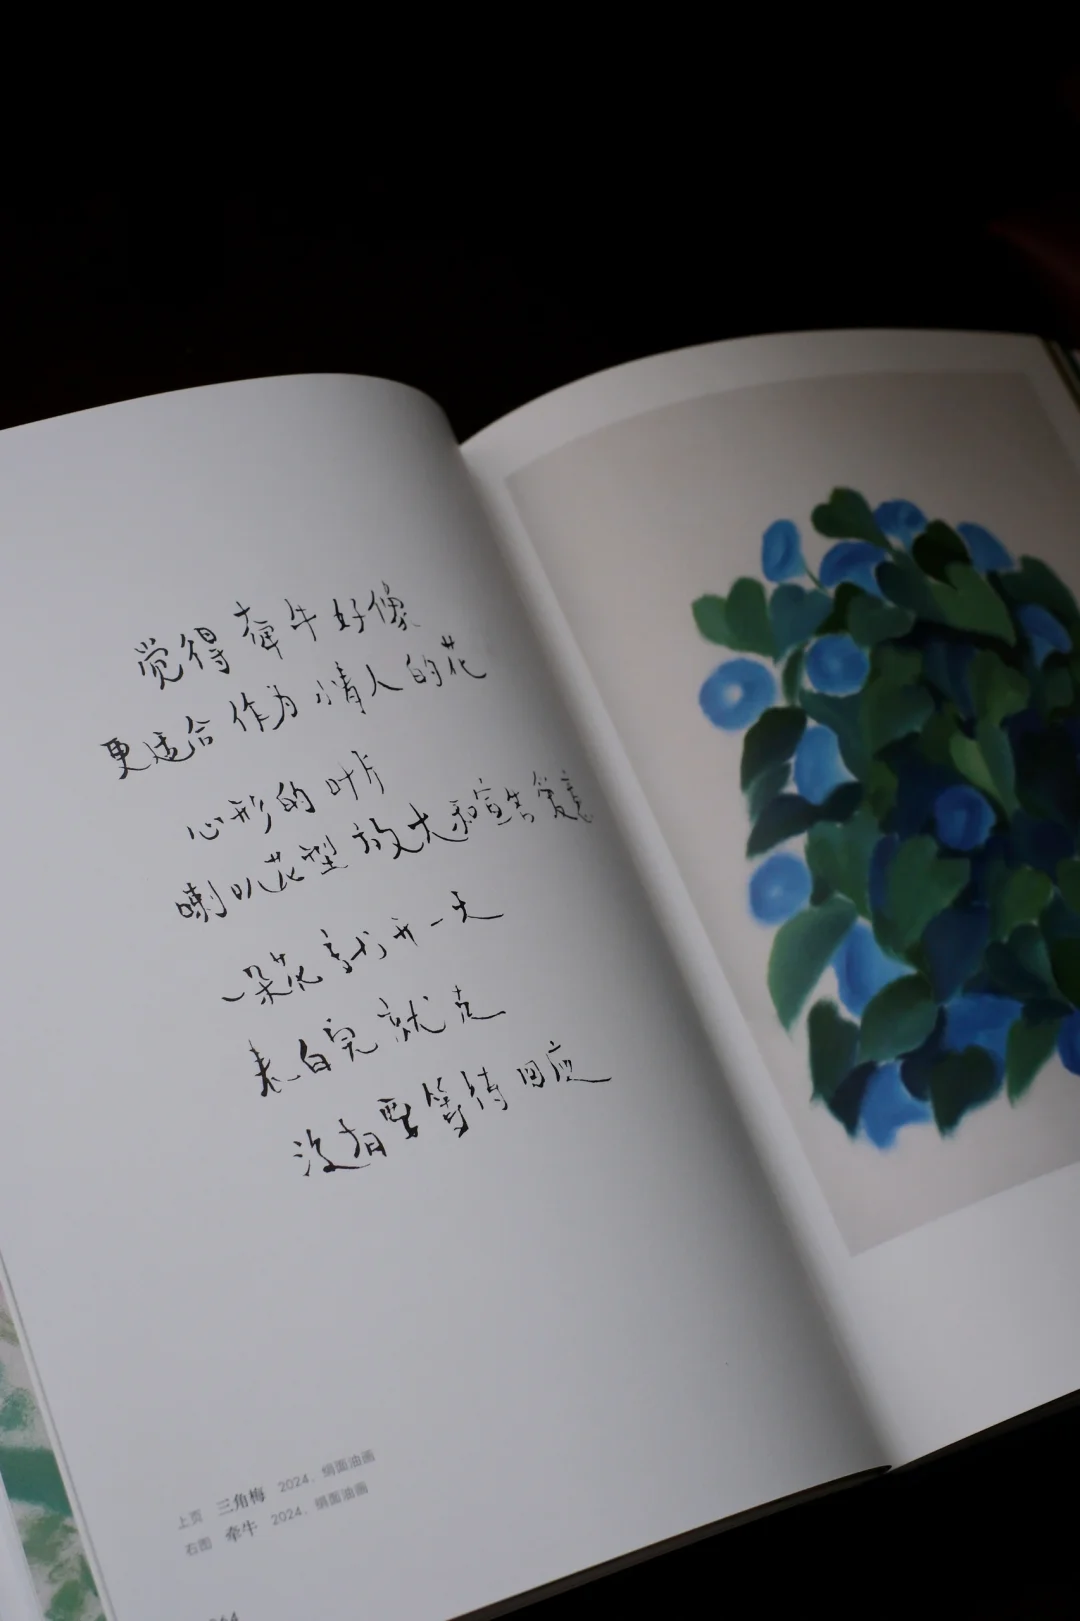 觉得牵牛好像
更适合作为情人的花
心形的叶片
喇叭花型放大和宣告爱意
一朵花就开一天
表白完就走
没有要等待回应
上页 三角梅 2024，绢面油画
右图 牵牛 2024，绢面油画